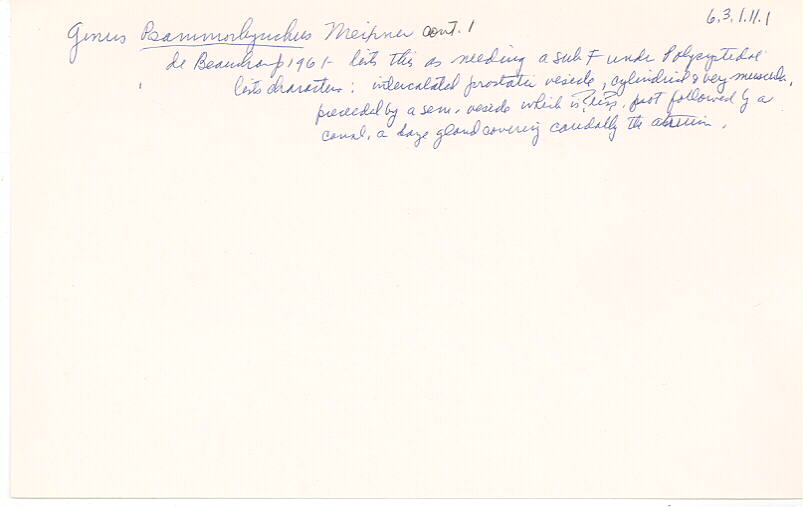 6.3.1.11.1
Genus Psammorhynchus Meixner cont. 1
de Beauchamp 1961 - lists this as needing a subF under Polycystidae
lists characters: intercalated prostatic vesicle, cylindrical & very muscular,
preceded by a sem. vesicle which is , just followed by a
canal, a large gland covering caudally the atrium.